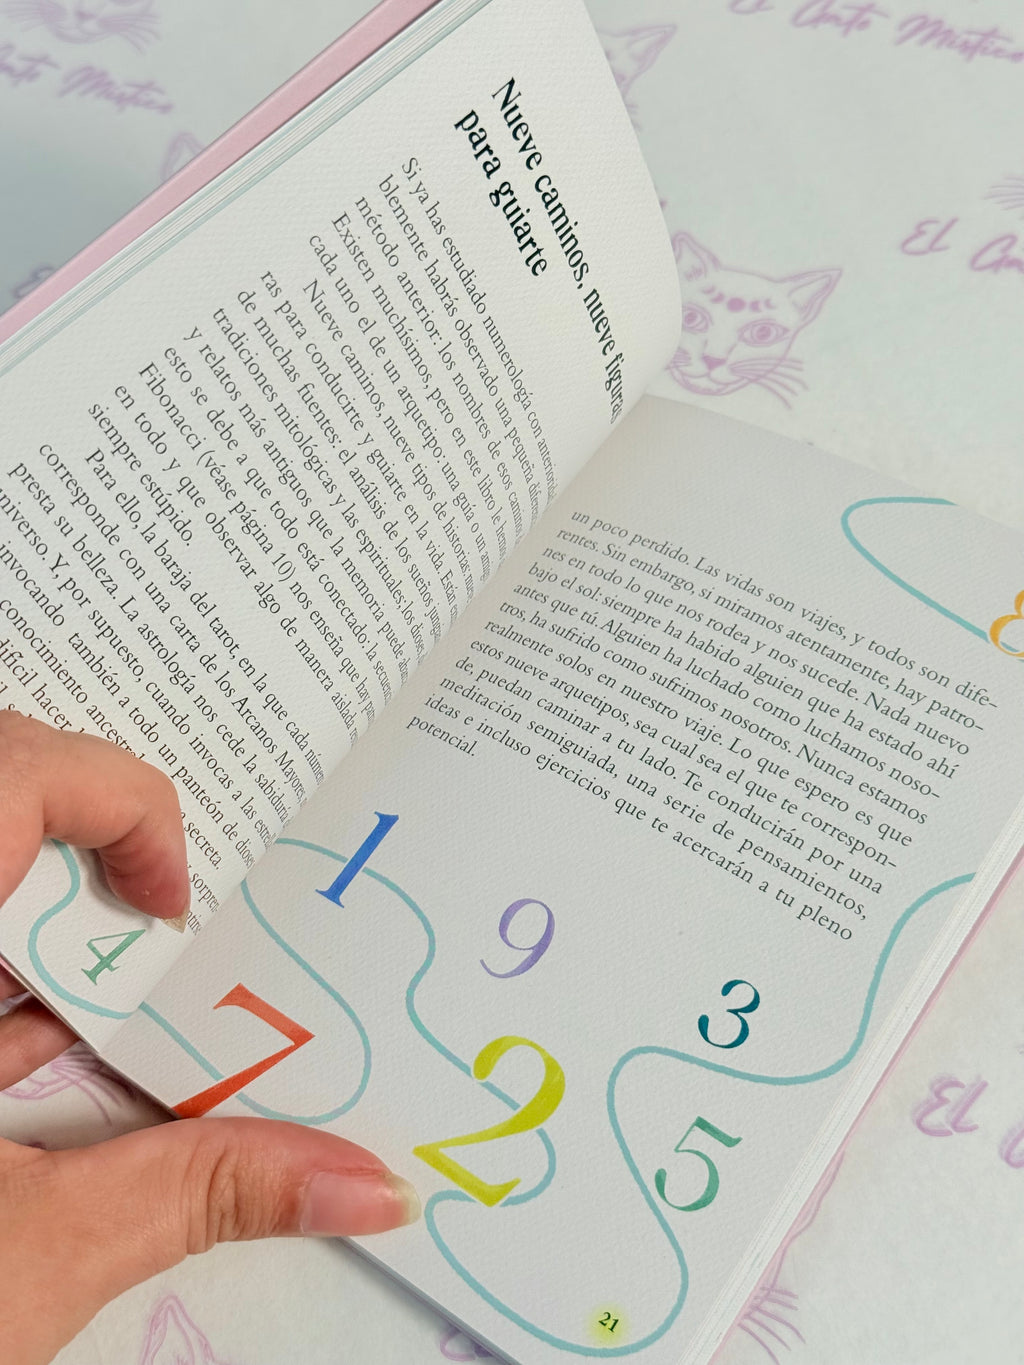 Nueve caminos, nueve
para guiarte
Si ya has estudiado numerología con
blemente habrás observado una pequeña
método anterior: los nombres de esos
Existen muchísimos, pero en este libro le
cada uno el de un arquetipo: una guía o un
Nueve caminos, nueve tipos de historias;
ras para conducirte y guiarte en la vida. Están
de muchas fuentes: el análisis de los sueños
tradiciones mitológicas y las espirituales; los
y relatos más antiguos que la memoria puede
esto se debe a que todo está conectado; la
Fibonacci (véase página 10) nos enseña que hay
en todo y que observar algo de manera aislada
siempre estúpido.
Para ello, la baraja del tarot, en la que cada
corresponde con una carta de los Arcanos Mayores,
presta su belleza. La astrología nos cede la sabiduría
universo. Y, por supuesto, cuando invocas a las
invocando también a todo un panteón de
conocimiento ancestral secreta.
difícil hacer
4
un poco perdido. Las vidas son viajes, y todos son dife-
rentes. Sin embargo, si miramos atentamente, hay patro-
nes en todo lo que nos rodea y nos sucede. Nada nuevo
bajo el sol: siempre ha habido alguien que ha estado ahí
antes que tú. Alguien ha luchado como luchamos noso-
tros, ha sufrido como sufrimos nosotros. Nunca estamos
realmente solos en nuestro viaje. Lo que espero es que
estos nueve arquetipos, sea cual sea el que te correspon-
de, puedan caminar a tu lado. Te conducirán por una
meditación semiguiada, una serie de pensamientos,
ideas e incluso ejercicios que te acercarán a tu pleno
potencial.
8
1
9
3
7
2
5
21
El Gato Místico
El Gato Místico
El
El